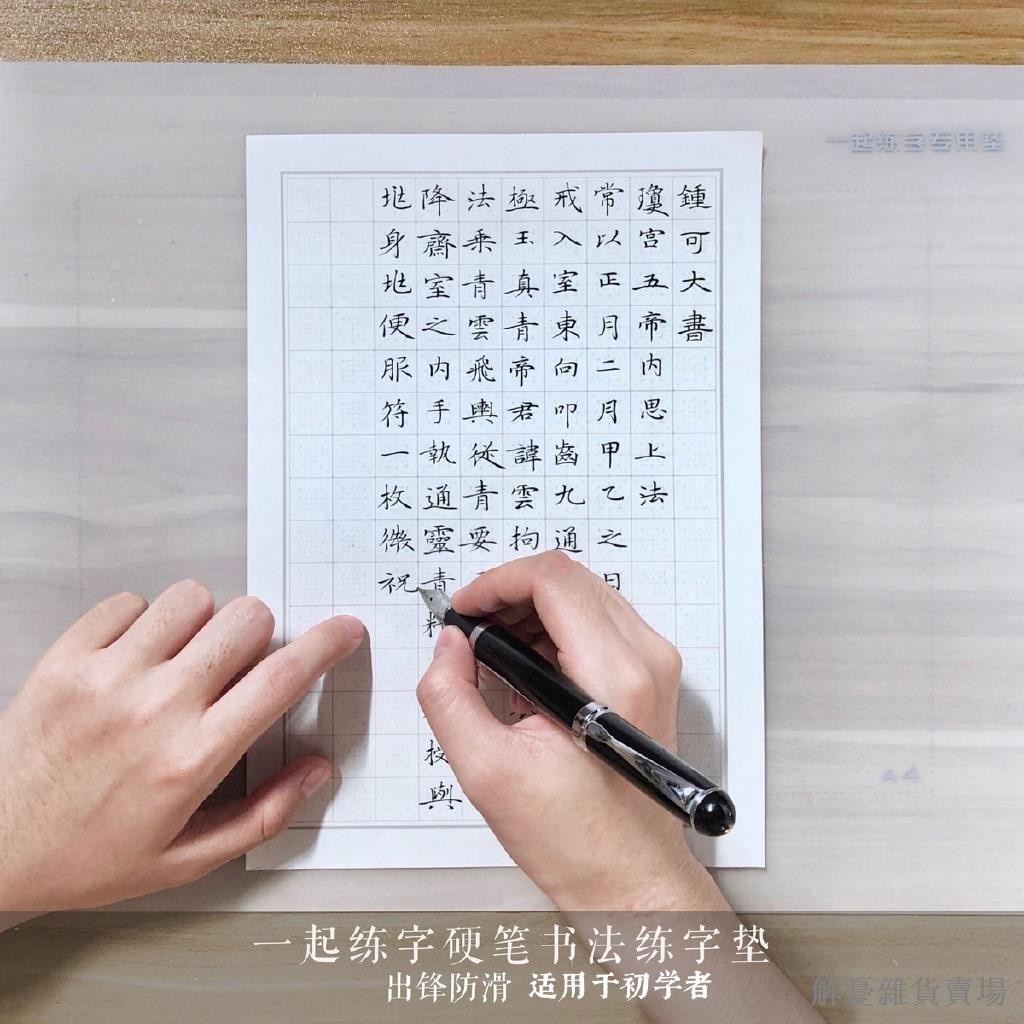 一起练字专用垫
鍾可大書
瓊宮五帝内思上法
常以正月二月甲乙之日
戒入室東向叩齒九通
極玉真青帝君諱雲拘
法乗青雲飛輿從青要
降齋室之内手執通靈青授與
兆身兆便服符一枚微祝
A4
一起练字硬笔书法练字垫
出锋防滑 适用于初学者
解憂雜貨賣場